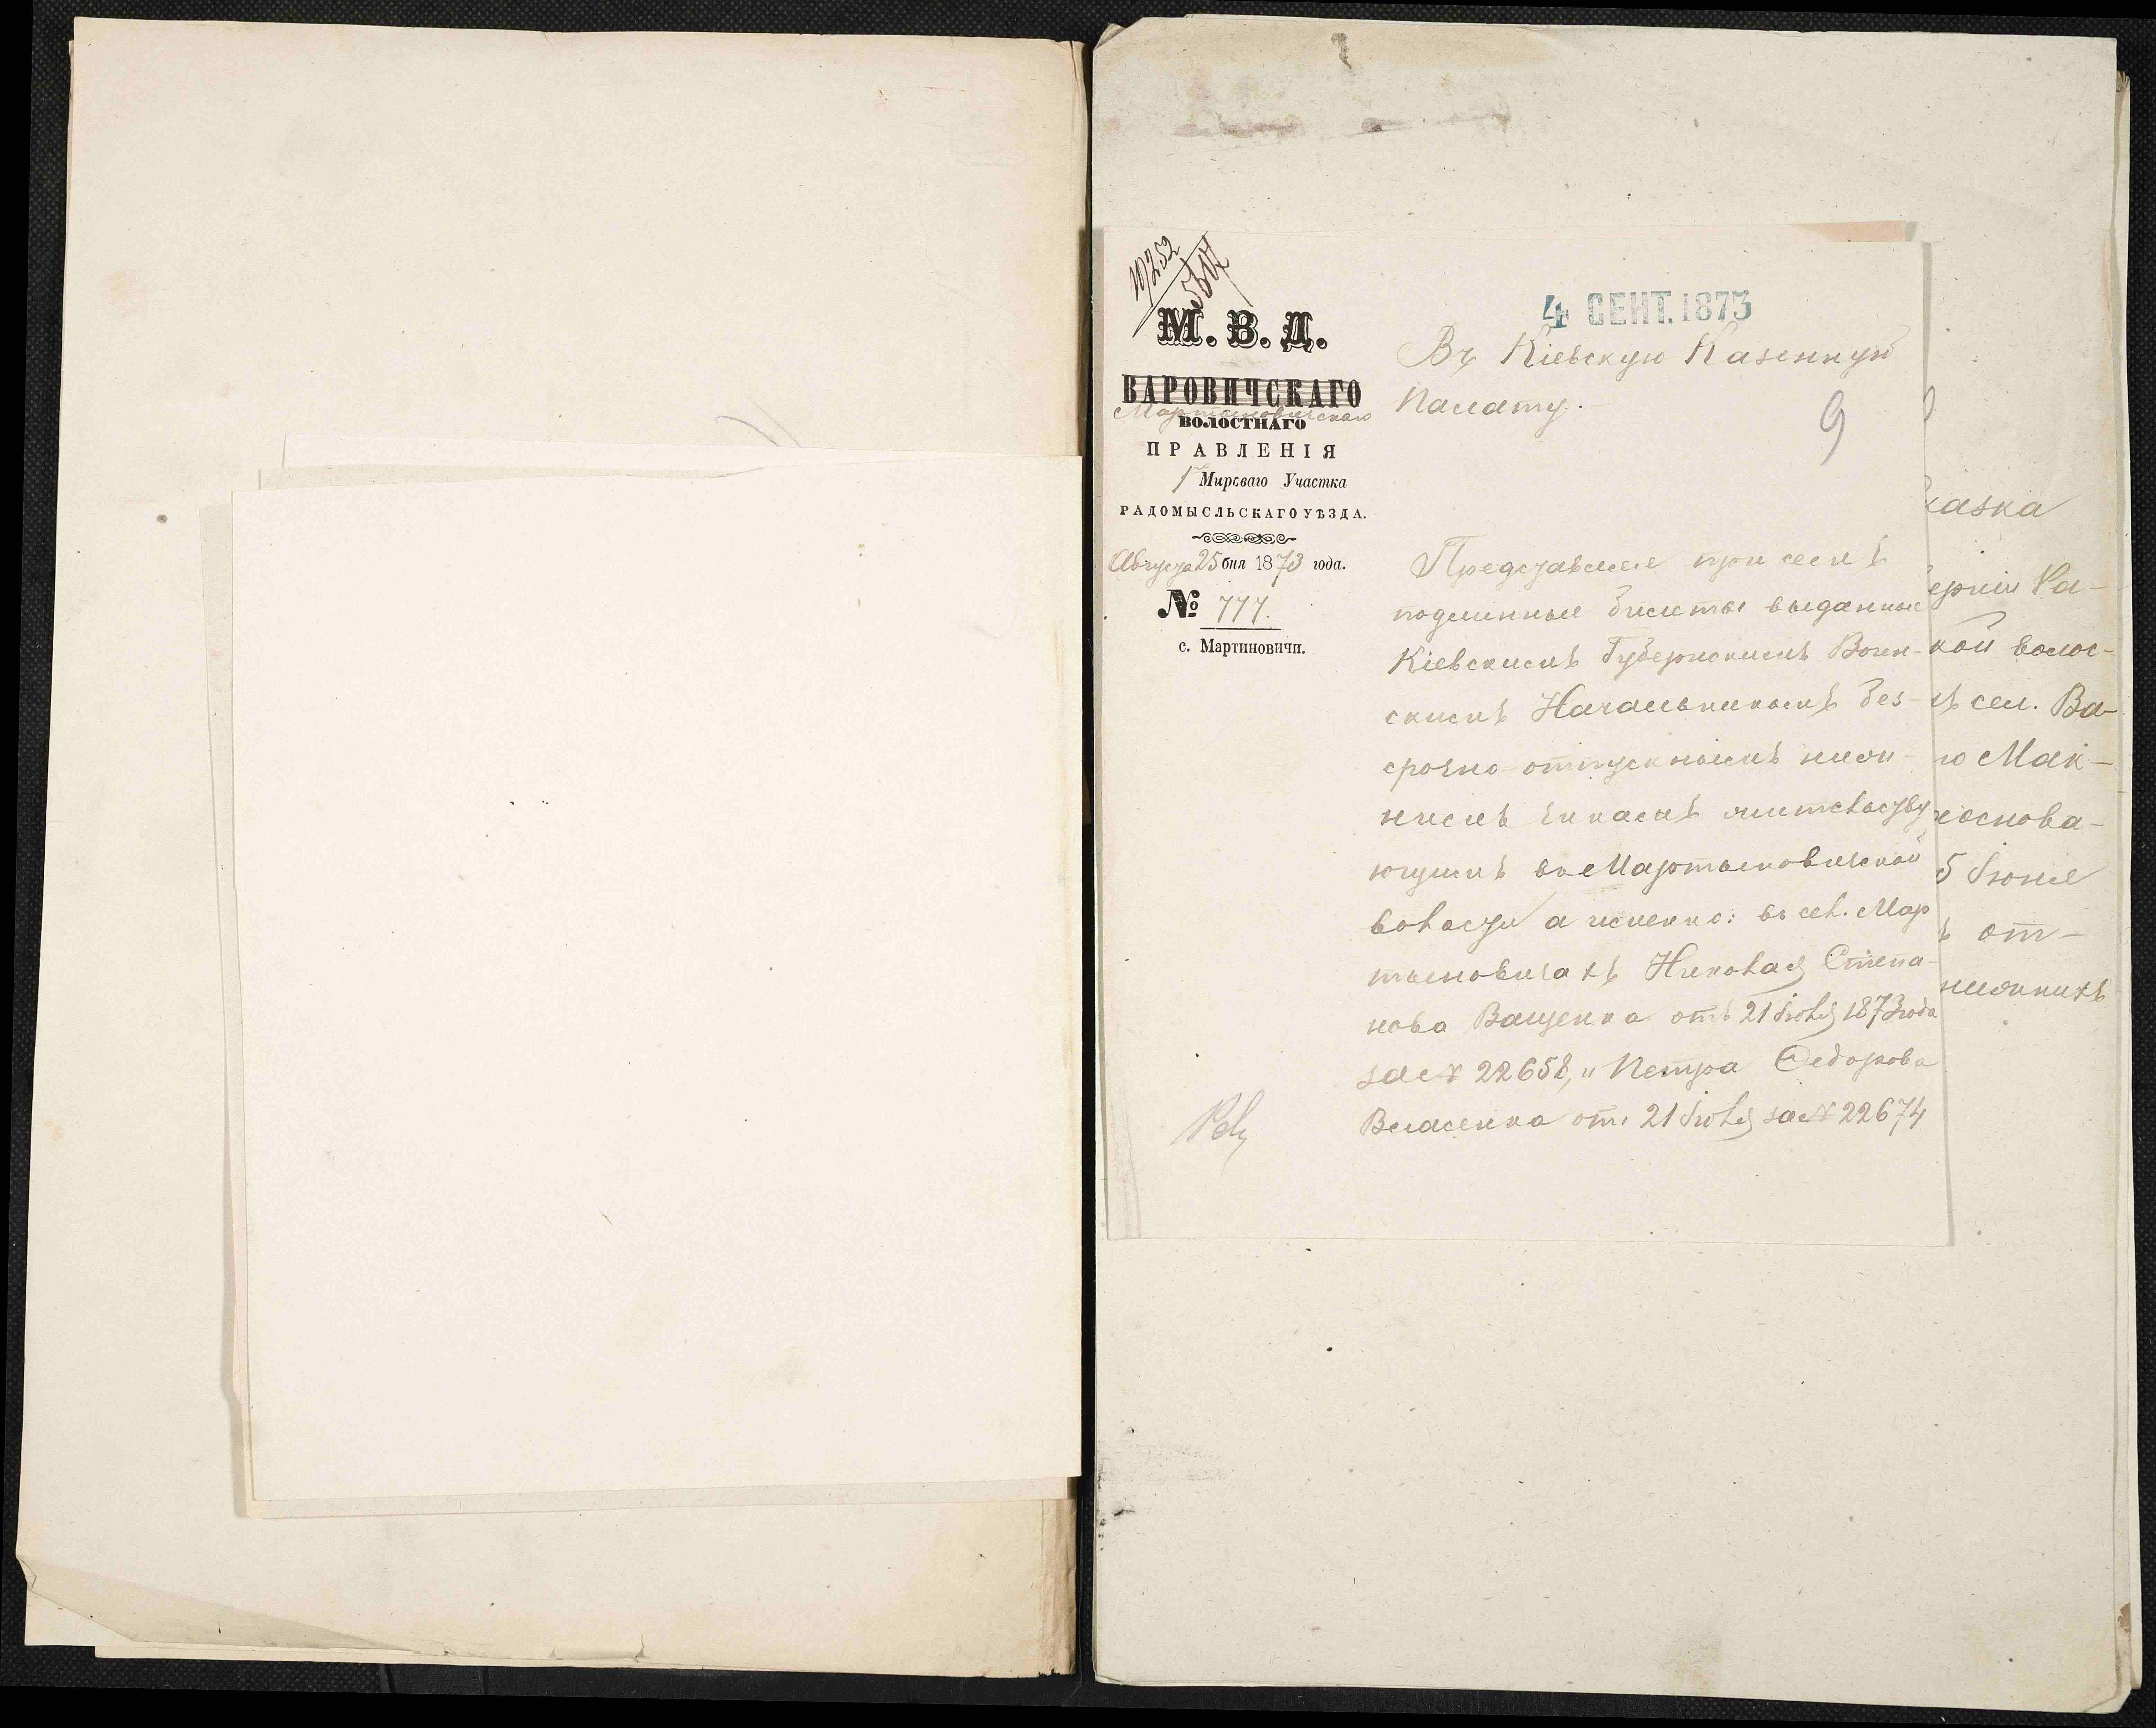 10252
5517
М. В. Д.
ВАРОВИЧСКАГО
Мартыновичскаго
ВОЛОСТНАГО
ПРАВЛЕНІЯ
1 Мироваго Участка
РАДОМЫСЛЬСКАГО УѢЗДА.
Августа 25 дня 1873 года.
№ 777.
с. Мартиновичи.
4 СЕНТ. 1873
Въ Кіевскую Казенную
Палату.
9
Представляя при семъ
подлинные билеты выданные
Кіевскимъ Губернскимъ Воин-
скимъ Начальникомъ без-
срочно-отпускнымъ ниж-
нимъ чинамъ жительству
ющимъ въ Мартыновичской
волости а именно: въ сел. Мар
тыновичахъ Николая Степа-
нова Ващенка отъ 21 Іюля 1873 года
за № 22658, и Петра Федорова
Власенка отъ 21 Іюля за № 22674
казка
ерніи Ра-
кой волос-
ъ сел. Ва-
го Мак-
основа-
5 Іюня
ъ от-
нижнихъ